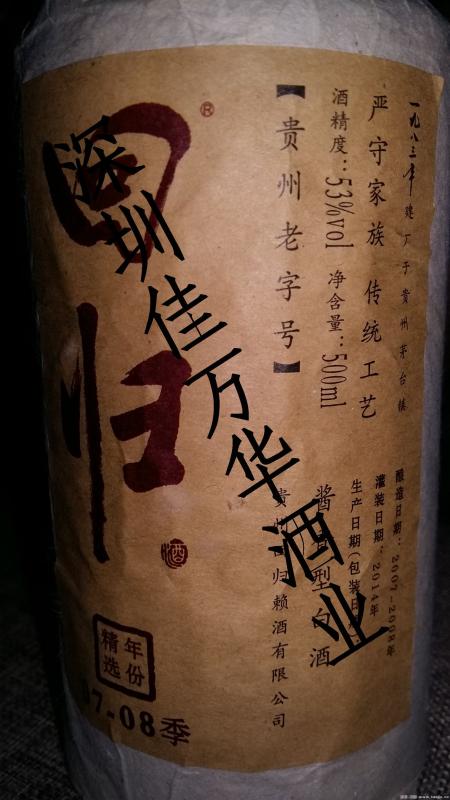 一九八三年建厂于贵州茅台镇
严守家族 传统工艺
酒精度：53%vol 净含量：500ml
【贵州老字号】
回归
®
酒
酿造日期：2007-2008年
灌装日期：2014年
生产日期(包装日
酱香型白酒
贵州回归赖酒有限公司
年份
精选
07-08季
深圳佳万华酒业